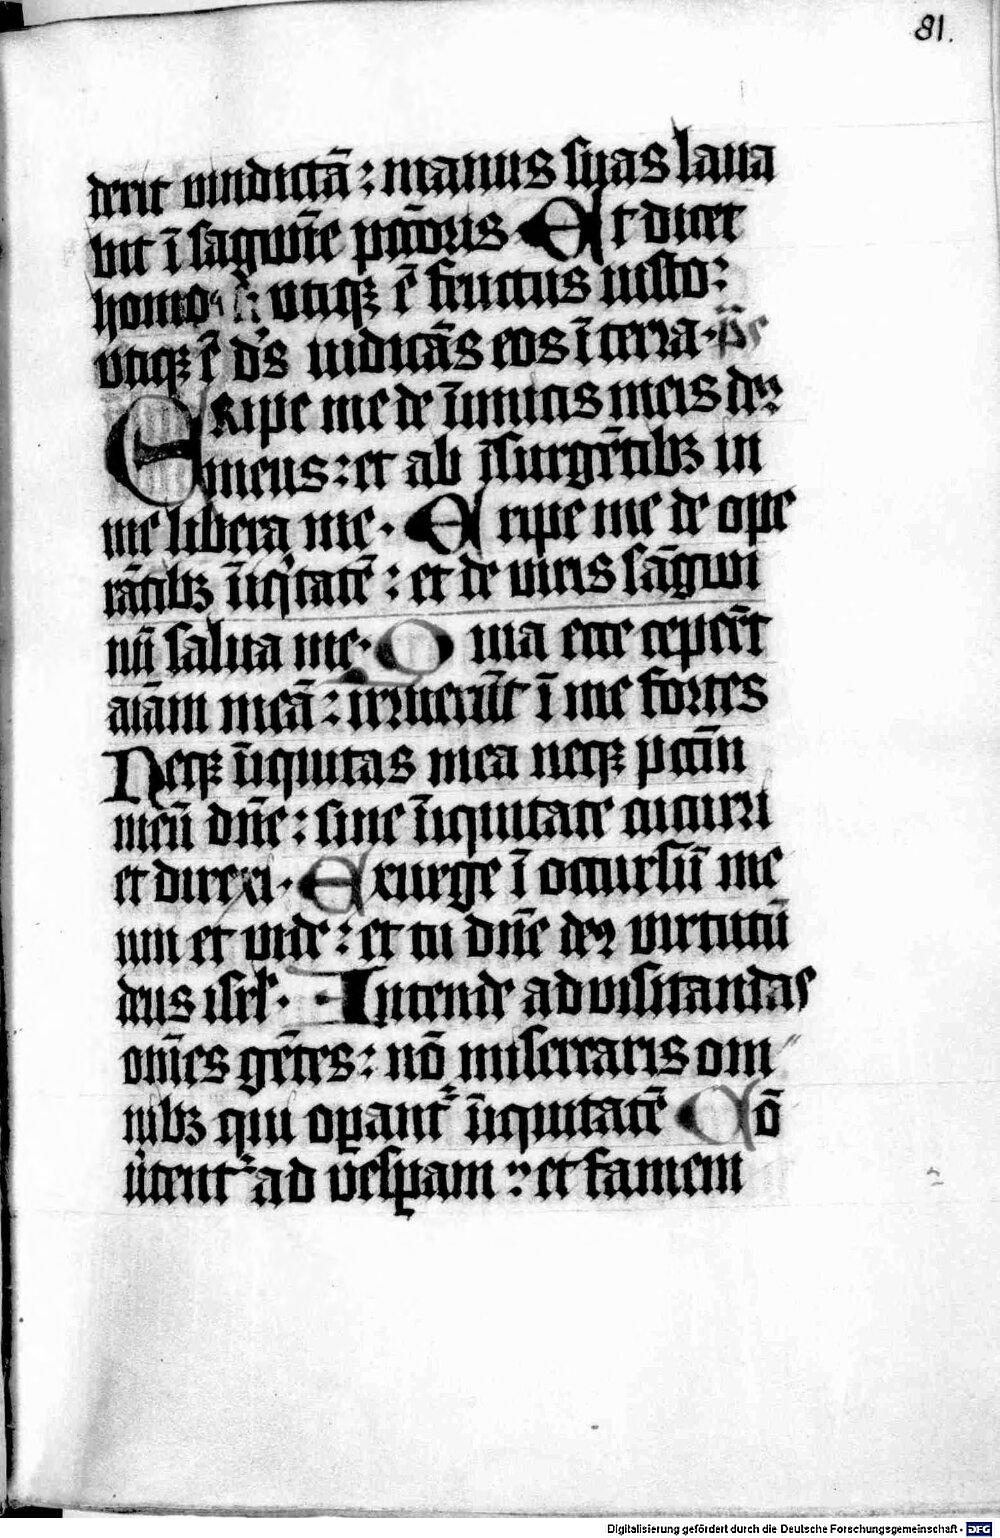 81.
derit vindictā : manus suas laua
bit ī sāgwīe pctōris Et dicet
homo si vtiqꝫ ē fructus iusto :
vtiqꝫ ē d's iudicās eos ī terra . ps
ERipe me de īimicis meis deꝰ
meus : et ab īsurgētibꝫ in
me libera me . Eripe me de ope
rātibꝫ īiqitatē : et de viris sāgwi
nū salua me . Quia ecce cepert̄
aīam meā : irruerūt ī me fortes
Neqꝫ īiquitas mea neqꝫ pctm̄
meū dn̄e : sine īiquitate cucurri
et direxi . Exurge ī occursū me
um et vide : et tu dn̄e deꝰ virtutū
deus isrl̄ . Intende ad visitandas
om̄es gētes : nō miserearis om
nibꝫ qui oꝑant᷑ īiquitatē Cō
ūtent᷑ ad vesꝑam : et famem
Digitalisierung gefördert durch die Deutsche Forschungsgemeinschaft - DFG